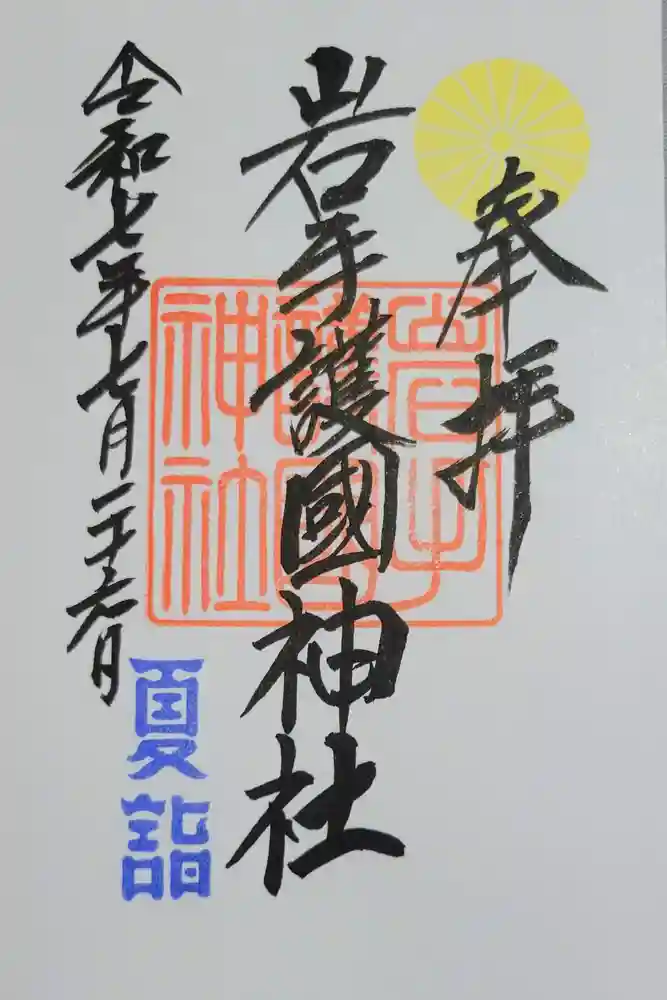 奉拝
岩手護國神社
令和七年七月二十六日
岩手
護國
神社
夏詣